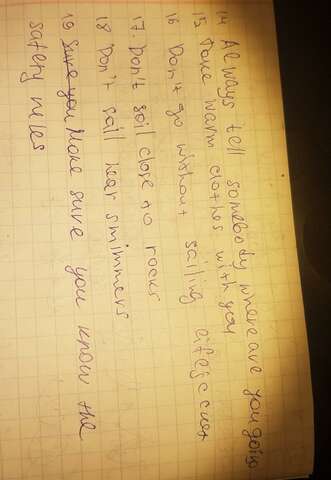 14 Always tell somebody where are you going
15 Take warm clothes with you
16 Don't go without sailing lifejacket
17. Don't sail close to rocks
18 Don't sail near smimmers
19 Make sure you know the
safety rules